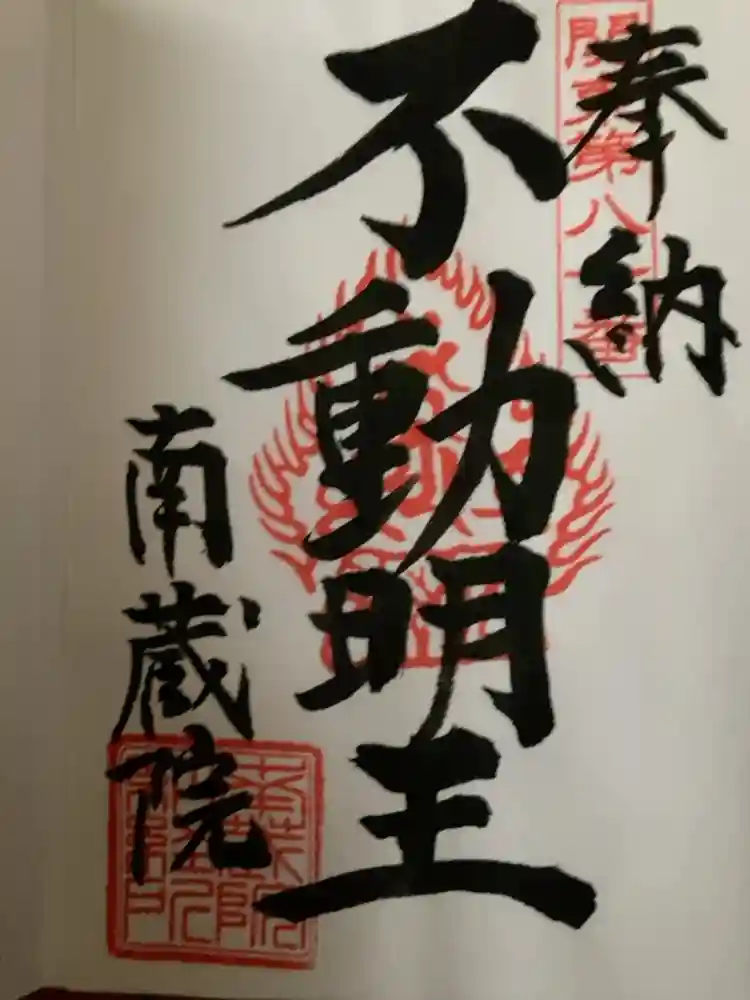 奉納
関東第八十番
不動明王
南蔵院